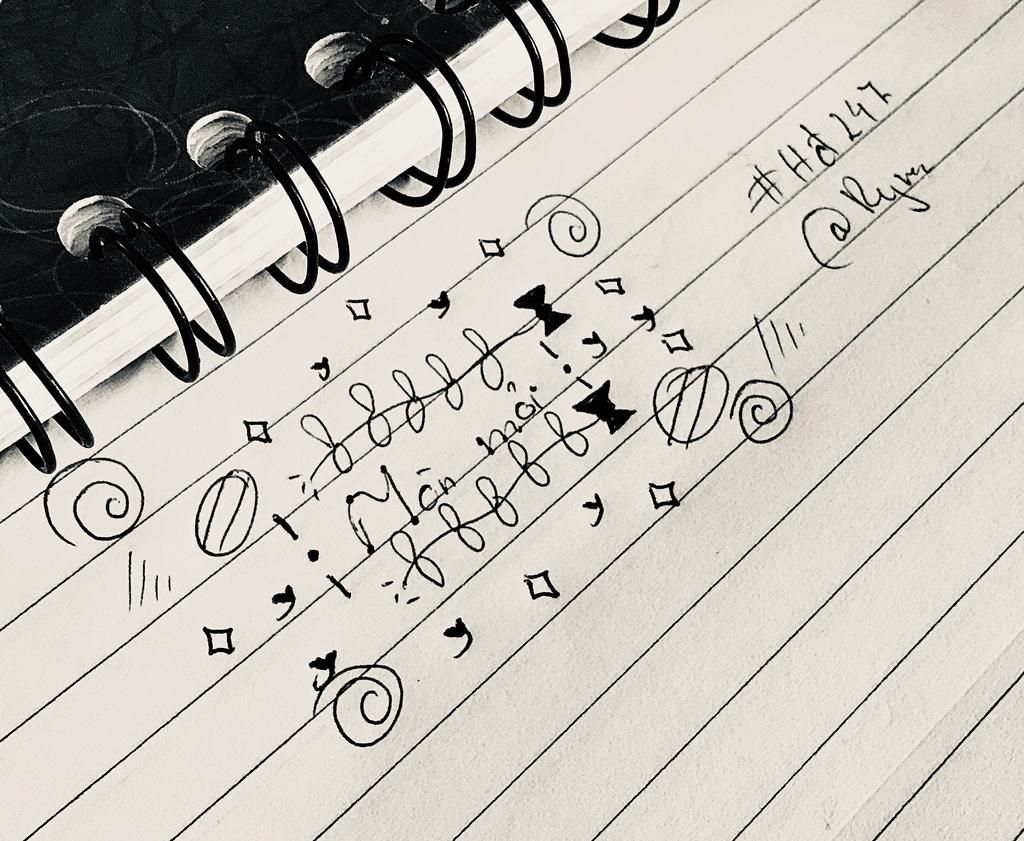 #Hđ247
@Rymn
Món mới